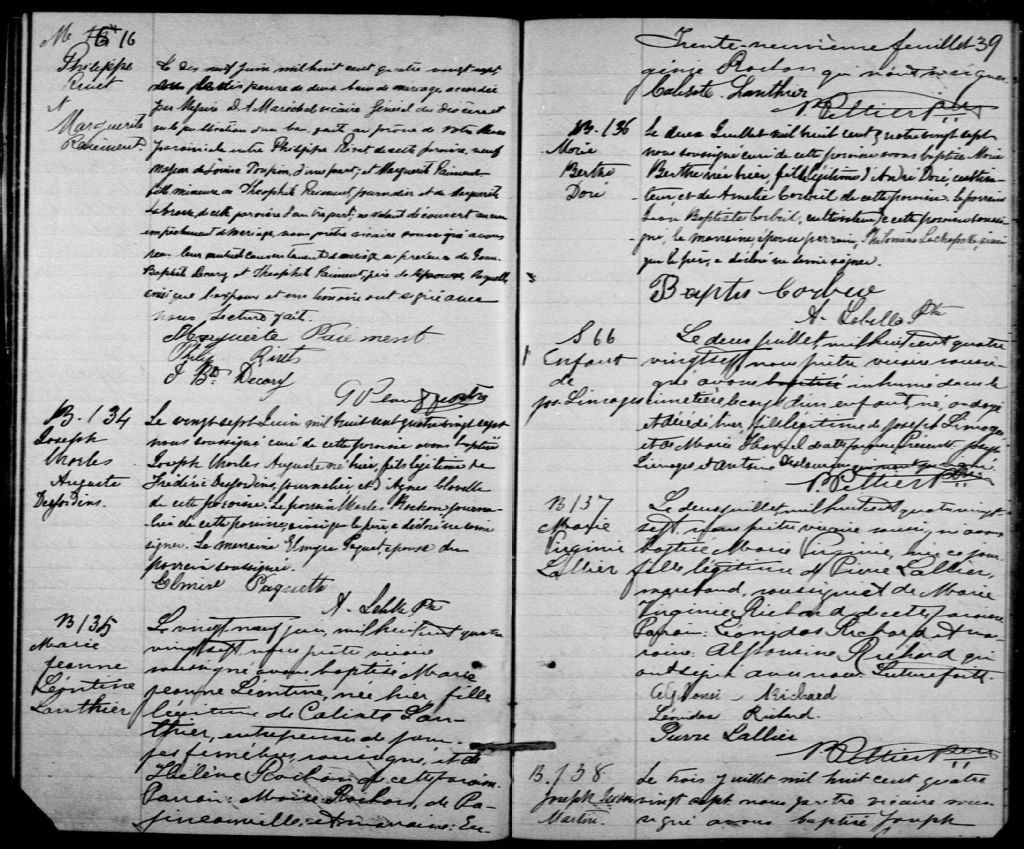 M 16
Philippe
Rivet
&
Marguerite
Paiement.
Le dix neuf Juin mil huit cent quatre vingt sept,
vu la dispense de deux bans de mariage accordée
par Messire Maréchal vicaire Général du diocèse et
vu la publication d'un ban, fait au prône de notre Messe
Paroissiale entre Philippe Rivet de cette paroisse, veuf
majeur de Louise Toupin, d'une part; et Marguerite Paiement
fille mineure de Théophile Paiement journalier et de Marguerite
Labrosse, de cette paroisse d'autre part; ne s'étant découvert aucun
empêchement de mariage, nous prêtre vicaire soussigné avons
reçu leur mutuel consentement de mariage en présence de Jean
Baptiste Decary, et Théophile Paiement, père de l'épouse, lesquels
ainsi que les époux et une témoin ont signé avec
nous. Lecture fait.
Marguerite Paiement
Rivet
J Bte Decary
prêtre
B. 134
Joseph
Charles
Auguste
Desjardins.
Le vingt sept Juin mil huit cent quatre vingt sept
nous soussigné curé de cette paroisse avons baptisé
Joseph Charles Auguste né hier, fils légitime de
Frédéric Desjardins, journalier et d'Agnes
de cette paroisse. Le parrain Charles journalier
de cette paroisse, ainsi que le père a déclaré ne savoir
signer. La marraine Elmire Paquet épouse du
parrain soussignée.
Elmire Paquette
A. Ptre
B 135
Marie
Jeanne
Léontine
Lanthier
Le vingt neuf juin, mil huit cent quatre
vingt sept nous prêtre vicaire
soussigné avons baptisé Marie
Jeanne Léontine, née hier, fille
légitime de Calixte Lan-
thier, entrepreneur de pom-
pes funèbres, soussigné, et de
Hélène Rochon de cette paroisse.
Parrain: Moïse Rochon, de Pa-
pineauville; et marraine: Eu-
Trente-neuvième feuillet 39
génie Rochon qui n'ont su signer
Calixte Lanthier
Pelletier Ptre
B. 136
Marie
Berthe
Doré
Le deux Juillet mil huit cent quatre vingt sept
nous soussigné curé de cette paroisse avons baptisé Marie
Berthe née hier, fille légitime d'André Doré, cultiva-
teur, et de Amélie Corbeil de cette paroisse. Le parrain
Jean Baptiste Corbeil, cultivateur de cette paroisse soussi-
gné, la marraine, épouse parrain, Philomène ainsi
que le père, a déclaré ne savoir signer.
Baptis Corbeil
A. Ptre
S 66
Enfant
de
Jos. Limoges
Le deux juillet mil huit cent quatre
vingt sept, nous prêtre vicaire soussi-
gné avons baptisé inhumé dans le
cimetière le corps d'un enfant, né, ondoyé
et décédé hier, fils légitime de Joseph Limoges
et de Marie de cette paroisse. Présents: Joseph
Limoges, et Antoine
Pelletier Ptre
B 137
Marie
Virginie
Lallier
Le deux juillet mil huit cent quatre vingt
sept, nous prêtre vicaire soussigné avons
baptisé Marie Virginie, née ce jour
fille légitime de Pierre Lallier,
marchand, soussigné et de Marie
Virginie Richard de cette paroisse
Parrain: Léonidas Richard et mar-
raine: Alphonsine Richard qui
ont signé avec nous. Lecture faite.
Richard
Léonidas Richard.
Pierre Lallier
Pelletier Ptre
B. 138
Joseph
Martin.
Le trois Juillet mil huit cent quatre
vingt sept nous prêtre vicaire sous-
signé avons baptisé Joseph